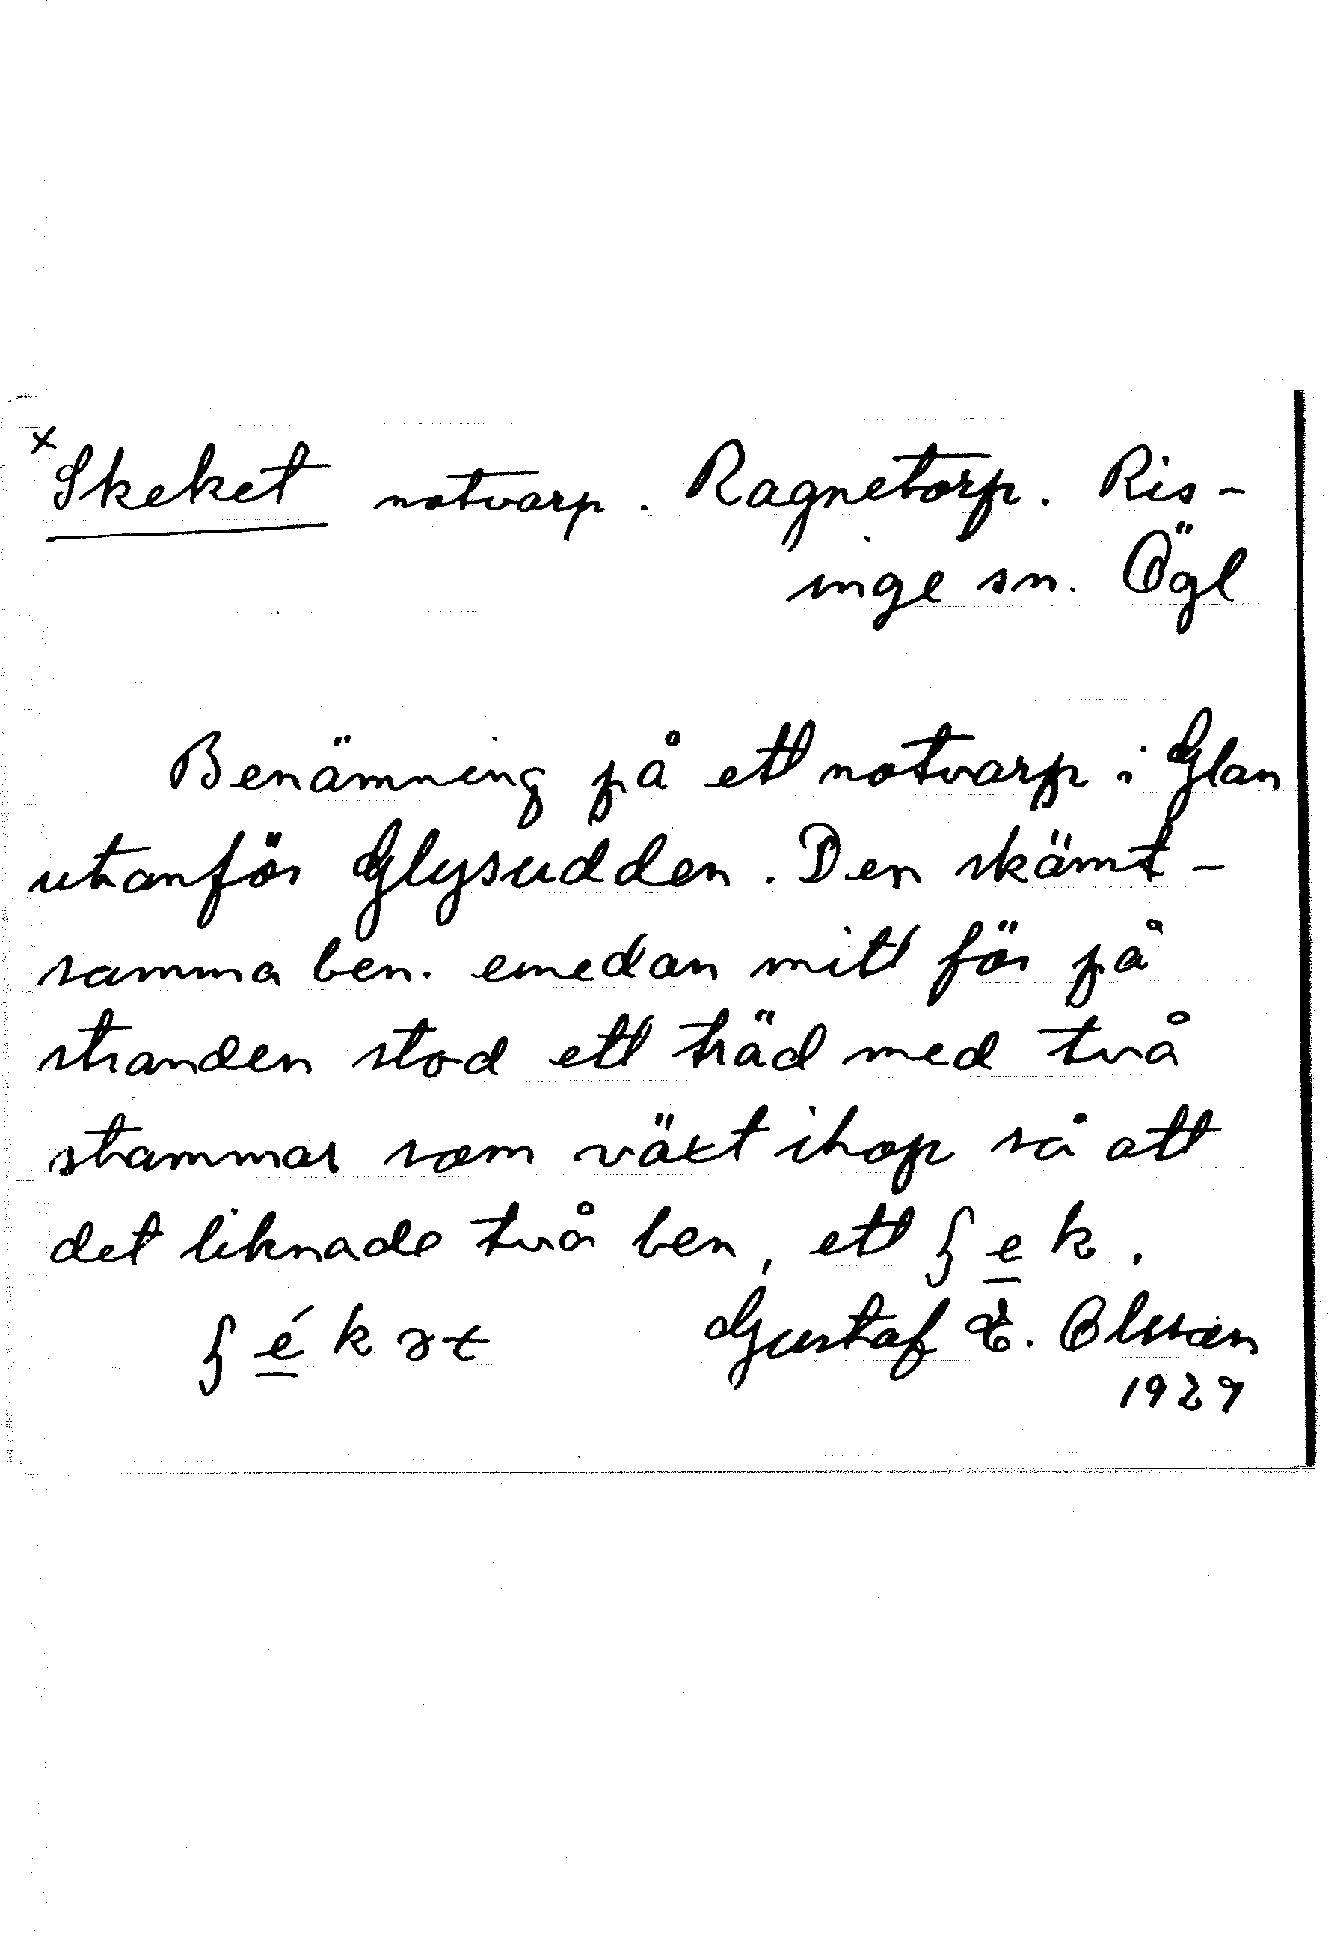 × Skeket notvarp. Ragnetorp. Ris-
inge sn. Ögl
Benämning på ett notvarp i Glan
utanför Glysudden. Den skämt-
samma ben. emedan mitt för på
stranden stod ett träd med två
stammar som växt ihop så att
det liknade två ben, ett ʃ e̲ k.
ʃ é̲ k ɤ t Gustaf E. Olsson
1927